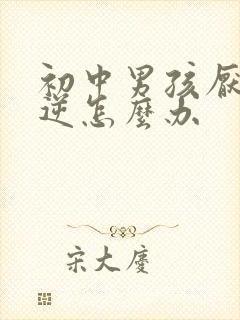 初中男孩厌
逆怎麼办
宋大慶